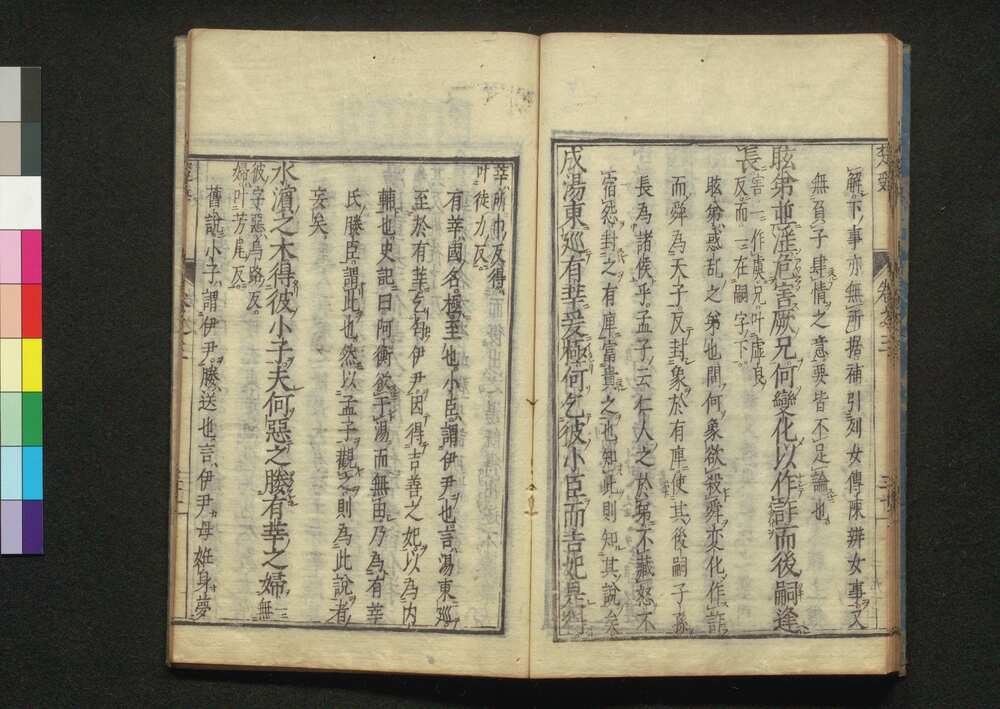 楚辭 卷之三
解下事亦無所据補引列女傳陳辨女事又
無負子肆情之意要皆不足論也
眩弟並淫危害厥兄何變化以作詐而後嗣逢
長害一作虞兄叶虛良
反而一在嗣字下
眩弟惑乱之弟也問何象欲殺舜变化作詐
而舜為天子反封象於有庳使其後嗣子孫
長為諸侯乎孟子云仁人之於弟不藏怒不
宿怨封之有庳富貴之也知此則知其說矣
成湯東巡有莘爰極何乞彼小臣而吉妃是得
莘所巾反得
叶徒力反
有莘國名極至也小臣謂伊尹也言湯東巡
至於有莘乞匄伊尹因得吉善之妃以為内
輔也史記曰阿衡欲于湯而無由乃為有莘
氏媵臣謂此也然以孟子觀之則為此說者
妄矣
水濱之木得彼小子夫何惡之媵有莘之婦無
彼字惡烏路反
婦叶芳尾反
舊說小子謂伊尹媵送也言伊尹母姙身夢